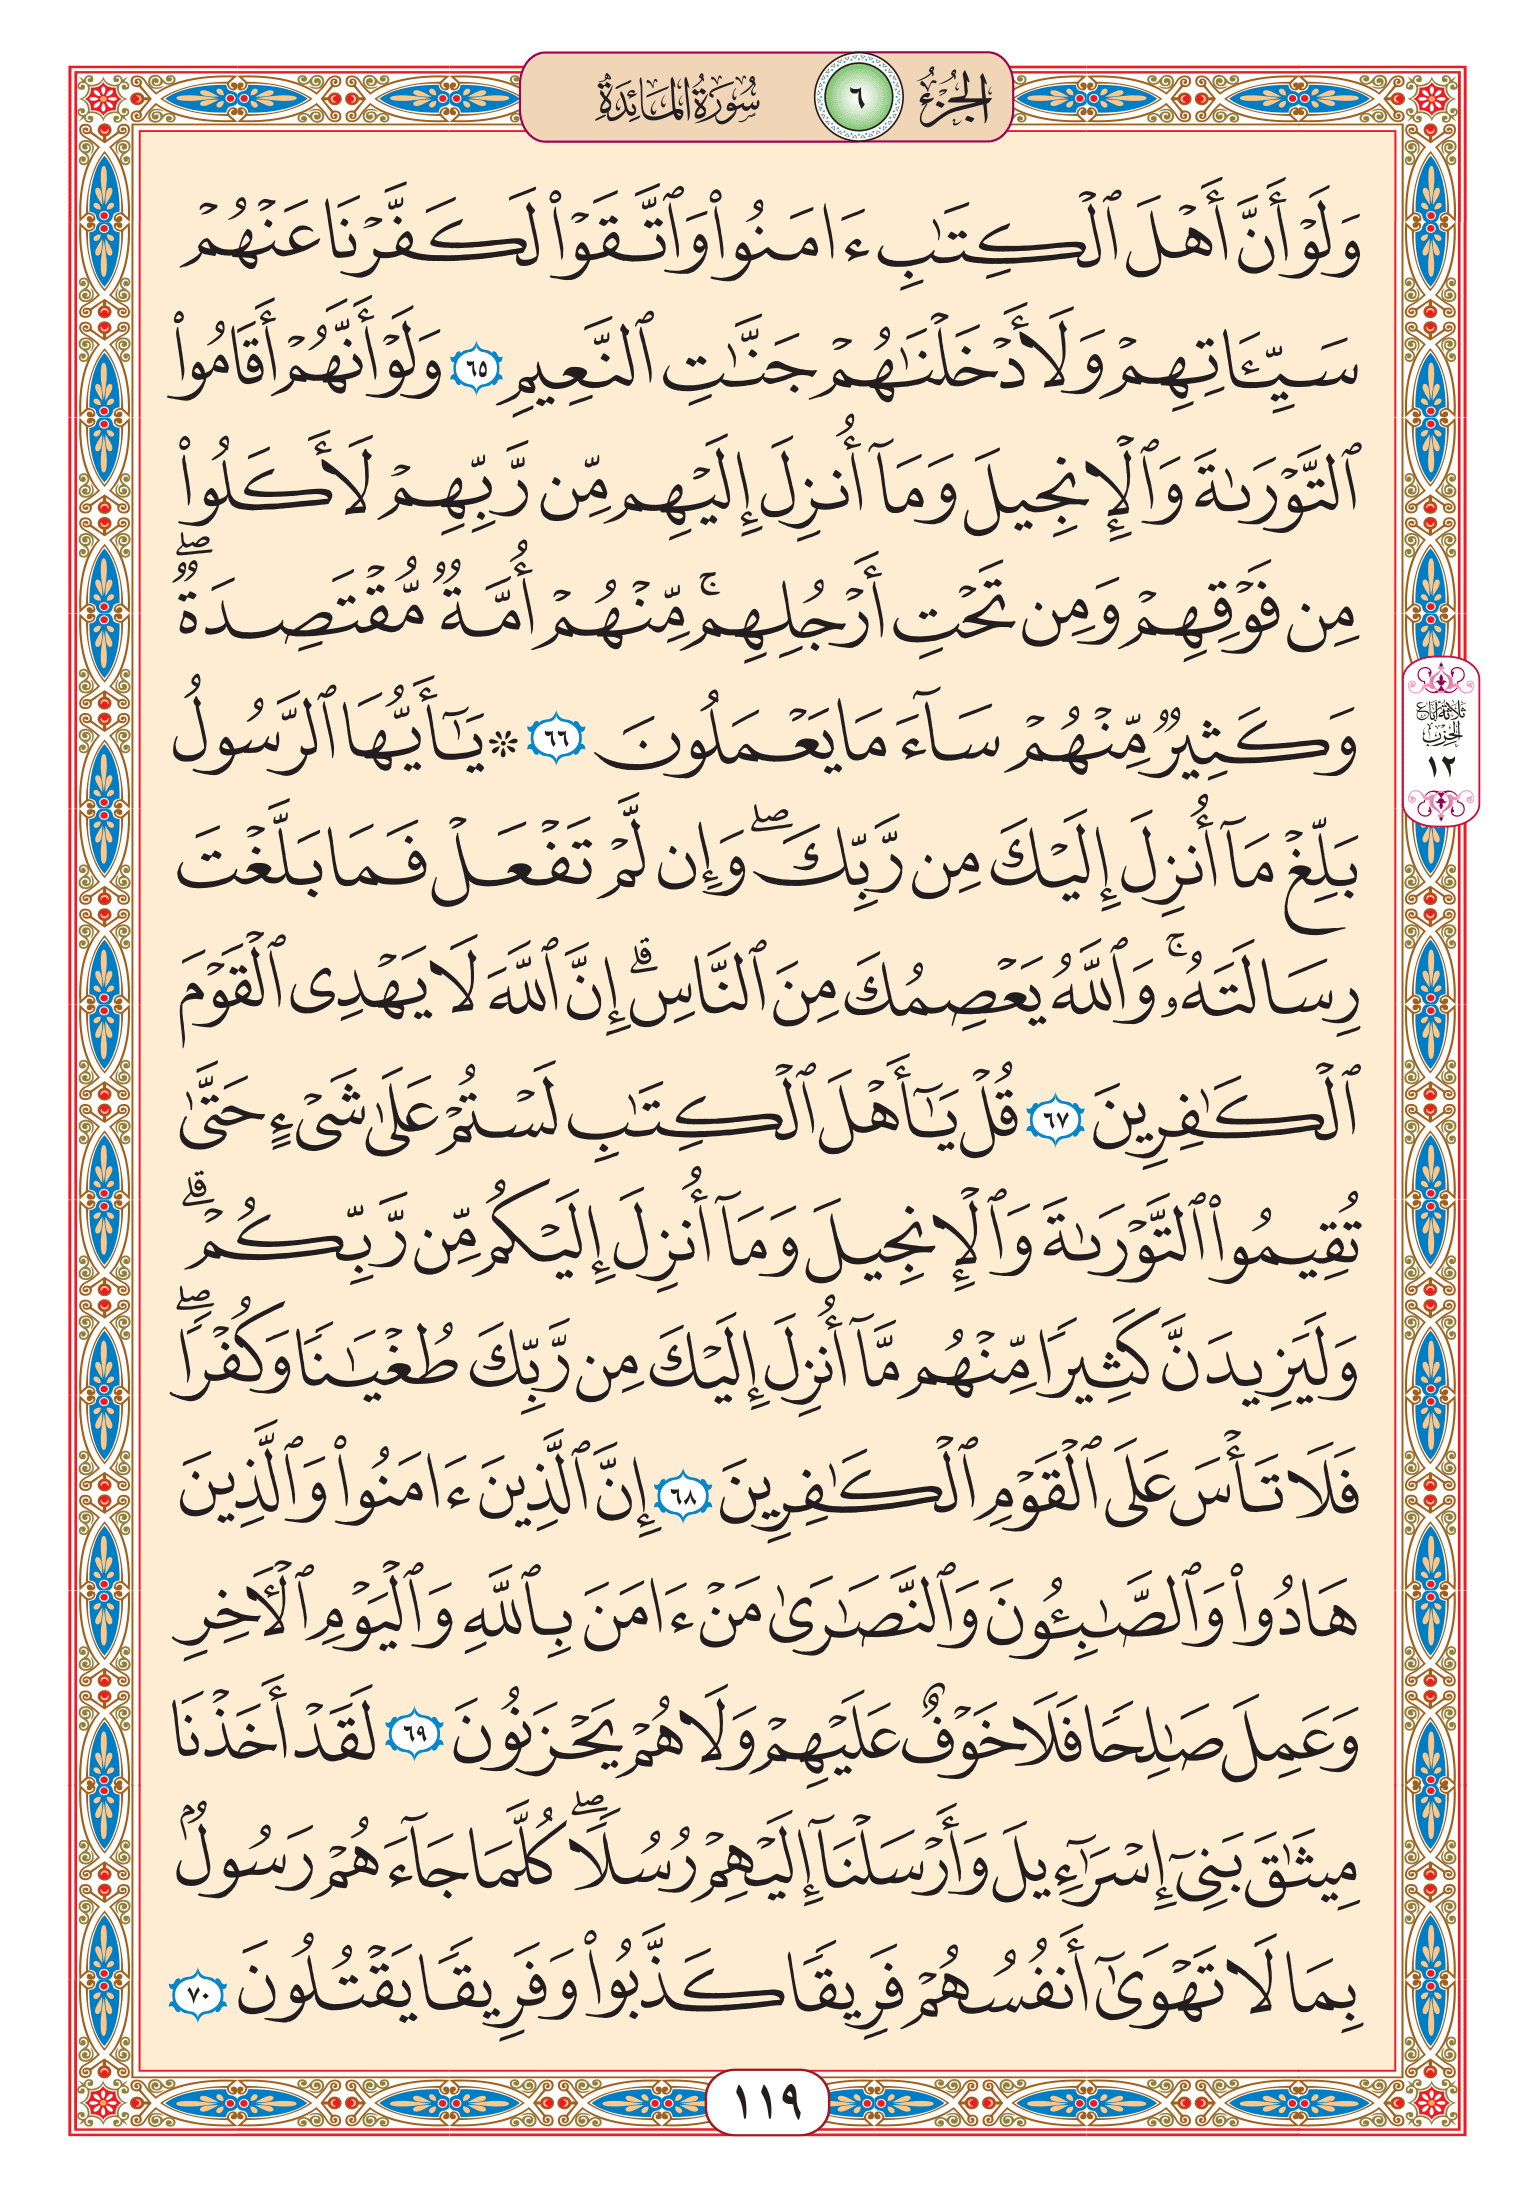 الجزء ٦ سورة المائدة
وَلَوۡ أَنَّ أَهۡلَ ٱلۡكِتَٰبِ ءَامَنُواْ وَٱتَّقَوۡاْ لَكَفَّرۡنَا عَنۡهُمۡ
سَيِّـَٔاتِهِمۡ وَلَأَدۡخَلۡنَٰهُمۡ جَنَّٰتِ ٱلنَّعِيمِ ٦٥ وَلَوۡ أَنَّهُمۡ أَقَامُواْ
ٱلتَّوۡرَىٰةَ وَٱلۡإِنجِيلَ وَمَآ أُنزِلَ إِلَيۡهِم مِّن رَّبِّهِمۡ لَأَكَلُواْ
مِن فَوۡقِهِمۡ وَمِن تَحۡتِ أَرۡجُلِهِمۚ مِّنۡهُمۡ أُمَّةٞ مُّقۡتَصِدَةٞۖ
وَكَثِيرٞ مِّنۡهُمۡ سَآءَ مَا يَعۡمَلُونَ ٦٦ ۞ يَٰٓأَيُّهَا ٱلرَّسُولُ
بَلِّغۡ مَآ أُنزِلَ إِلَيۡكَ مِن رَّبِّكَۖ وَإِن لَّمۡ تَفۡعَلۡ فَمَا بَلَّغۡتَ
رِسَالَتَهُۥۚ وَٱللَّهُ يَعۡصِمُكَ مِنَ ٱلنَّاسِۗ إِنَّ ٱللَّهَ لَا يَهۡدِي ٱلۡقَوۡمَ
ٱلۡكَٰفِرِينَ ٦٧ قُلۡ يَٰٓأَهۡلَ ٱلۡكِتَٰبِ لَسۡتُمۡ عَلَىٰ شَيۡءٍ حَتَّىٰ
تُقِيمُواْ ٱلتَّوۡرَىٰةَ وَٱلۡإِنجِيلَ وَمَآ أُنزِلَ إِلَيۡكُم مِّن رَّبِّكُمۡۗ
وَلَيَزِيدَنَّ كَثِيرٗا مِّنۡهُم مَّآ أُنزِلَ إِلَيۡكَ مِن رَّبِّكَ طُغۡيَٰنٗا وَكُفۡرٗاۖ
فَلَا تَأۡسَ عَلَى ٱلۡقَوۡمِ ٱلۡكَٰفِرِينَ ٦٨ إِنَّ ٱلَّذِينَ ءَامَنُواْ وَٱلَّذِينَ
هَادُواْ وَٱلصَّٰبِـُٔونَ وَٱلنَّصَٰرَىٰ مَنۡ ءَامَنَ بِٱللَّهِ وَٱلۡيَوۡمِ ٱلۡأٓخِرِ
وَعَمِلَ صَٰلِحٗا فَلَا خَوۡفٌ عَلَيۡهِمۡ وَلَا هُمۡ يَحۡزَنُونَ ٦٩ لَقَدۡ أَخَذۡنَا
مِيثَٰقَ بَنِيٓ إِسۡرَٰٓءِيلَ وَأَرۡسَلۡنَآ إِلَيۡهِمۡ رُسُلٗاۖ كُلَّمَا جَآءَهُمۡ رَسُولُۢ
بِمَا لَا تَهۡوَىٰٓ أَنفُسُهُمۡ فَرِيقٗا كَذَّبُواْ وَفَرِيقٗا يَقۡتُلُونَ ٧٠
ثلاثة أرباع
الحزب
١٢
١١٩